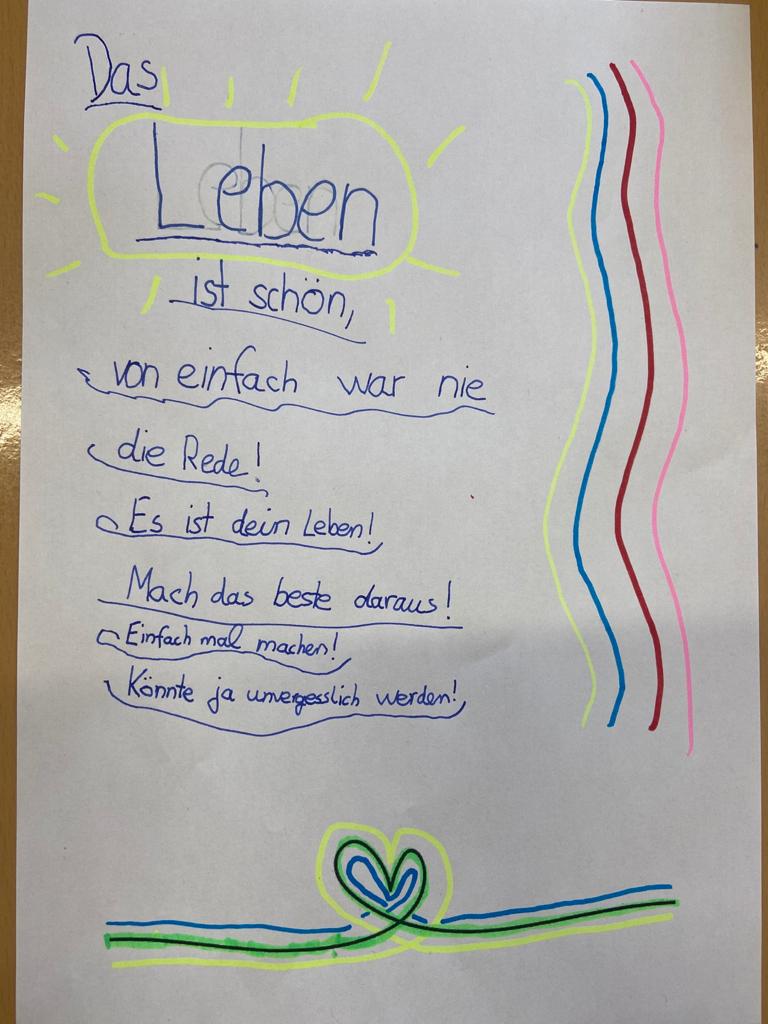 Das
Leben
ist schön,
von einfach war nie
die Rede!
Es ist dein Leben!
Mach das beste daraus!
Einfach mal machen!
Könnte ja unvergesslich werden!